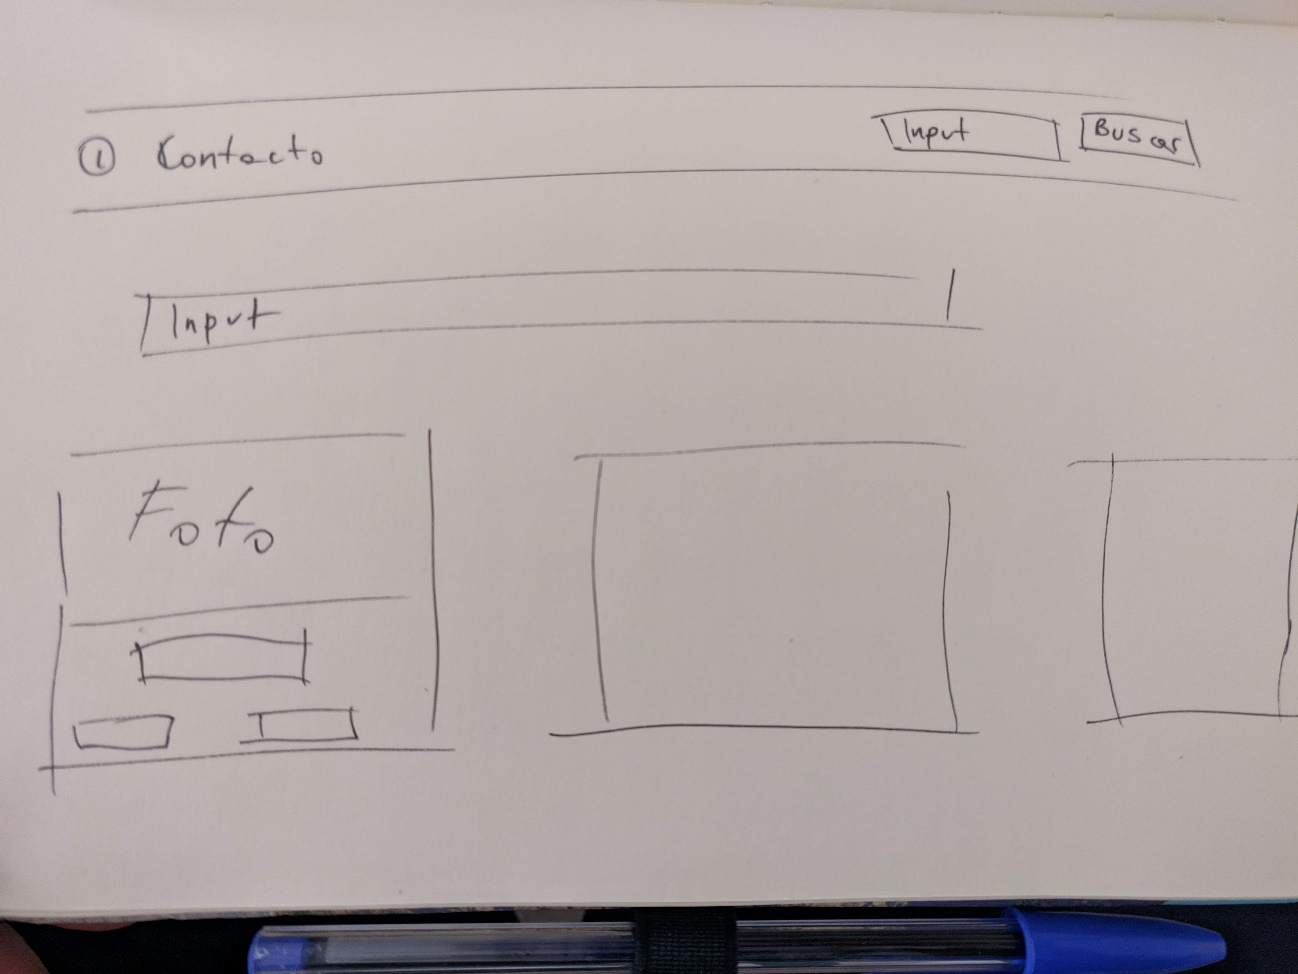 ① Contacto Input Buscar
Input
Foto